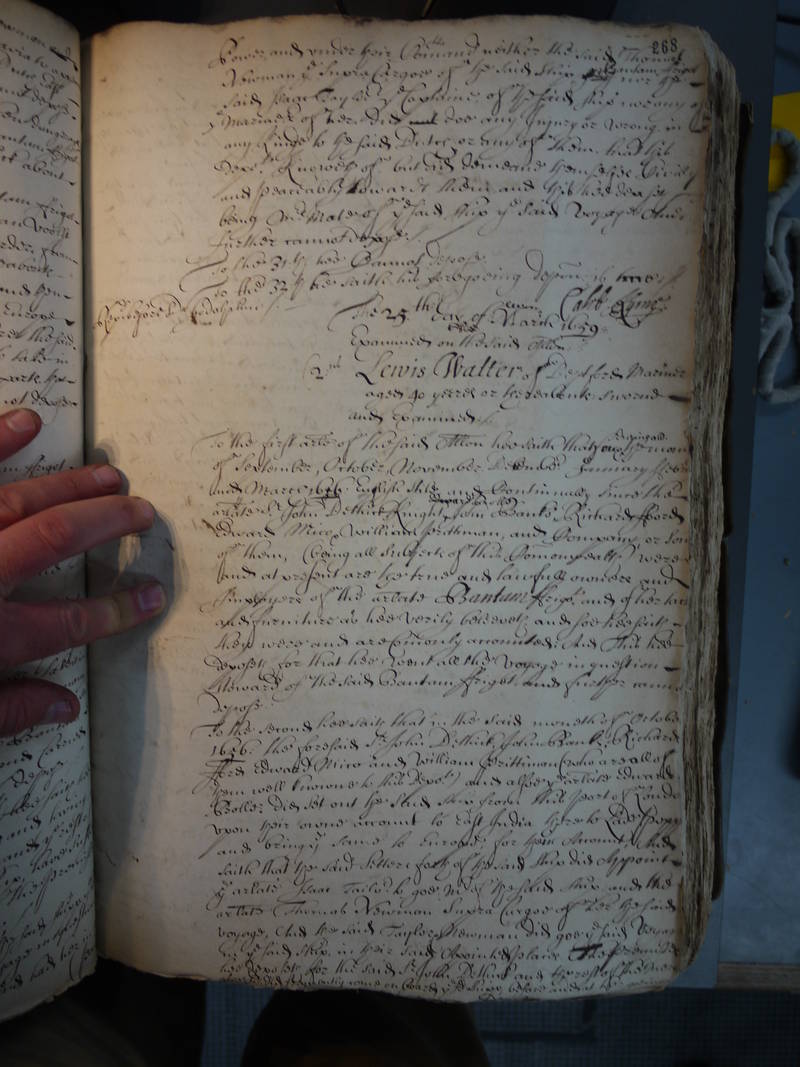 268
power and under their Comand neither the said Thomas
Newman ye Supra Cargoe of the said ship Bantam friget nor the
said Isaac Taylor ye Captaine of the said ship nor any of
ye Mariners of her did doe any Injury or wrong in
any kinde to the said Dutch or any of them that this
depot. knowes of but did demeane themselves Civilly
and peaceably towards them and this hee deposeth
being Mate of ye said ship ye said voyage And
further cannot depose
To the 31th hee Cannot depose
To the 32th hee saith his foregoeing depon. is true
The 25th day of March 1659
Examined on the said Allon
2nd Lewis Walter of Deptford Mariner
aged 40 yeares or thereabouts sworne
and Examined
To the first arle of the said Allon hee saith that
of September, October, November December January
and March 1656 English stile and Continually since the
arlate Sr John Dethick knight, John Banks, Richard fford
Edward Mico, William Prittiman, and Company or some
of them, (being all subjects of this Comonwealth) were
and at present are the true and lawfull owners and
Imployers of the arlate Bantam ffrigt and of her
and furniture as hee verily beleeveth and soe hee saith
they were and are Comonly accounted. And this hee
deposeth for that hee went all the voyage in question
Steward of the said Bantam ffriget and further cannot
depose
To the second hee saith that in the said moneth of October
1656 the foresaid Sr John Dethick, John Banks, Richard
fford Edward Mico and William Prittiman (who are all of
them well knowne to this depot) and alsoe ye arlate Edward
did set out the said ship from this port of London
upon their owne account to East India there to
and bring ye same to Europe for their Account, And
saith that the said setters forth of the said ship did Appoint
ye arlate Isaac Tailor to goe Mr of the said ship and the
arlate Thomas Newman Supra Cargoe of her the said
voyage, And the said Taylor Newman did goe ye said voyage
in ye said ship in their said Appointed places The premises
hee deposeth for the said Sr John Dethick and the rest of the